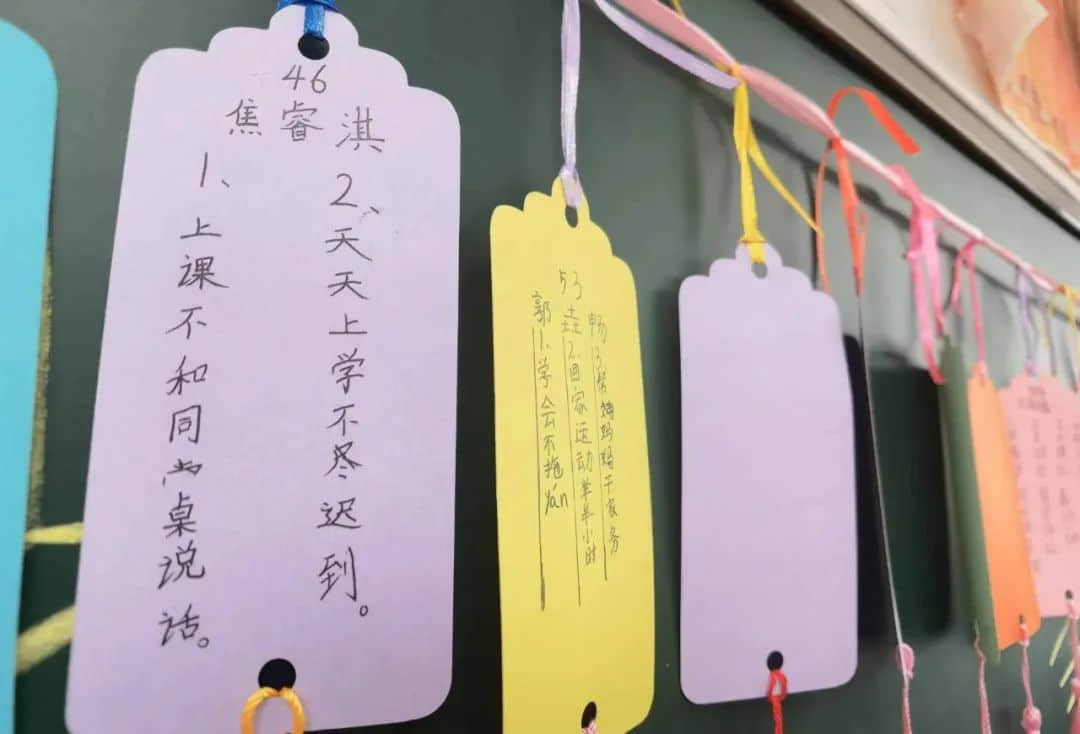 46
焦睿淇
1、上课不和同桌说话。
2、天天上学不迟到。
53
郭垚畅
1、学会不拖yán
2、回家运动半小时
3、帮妈妈干家务